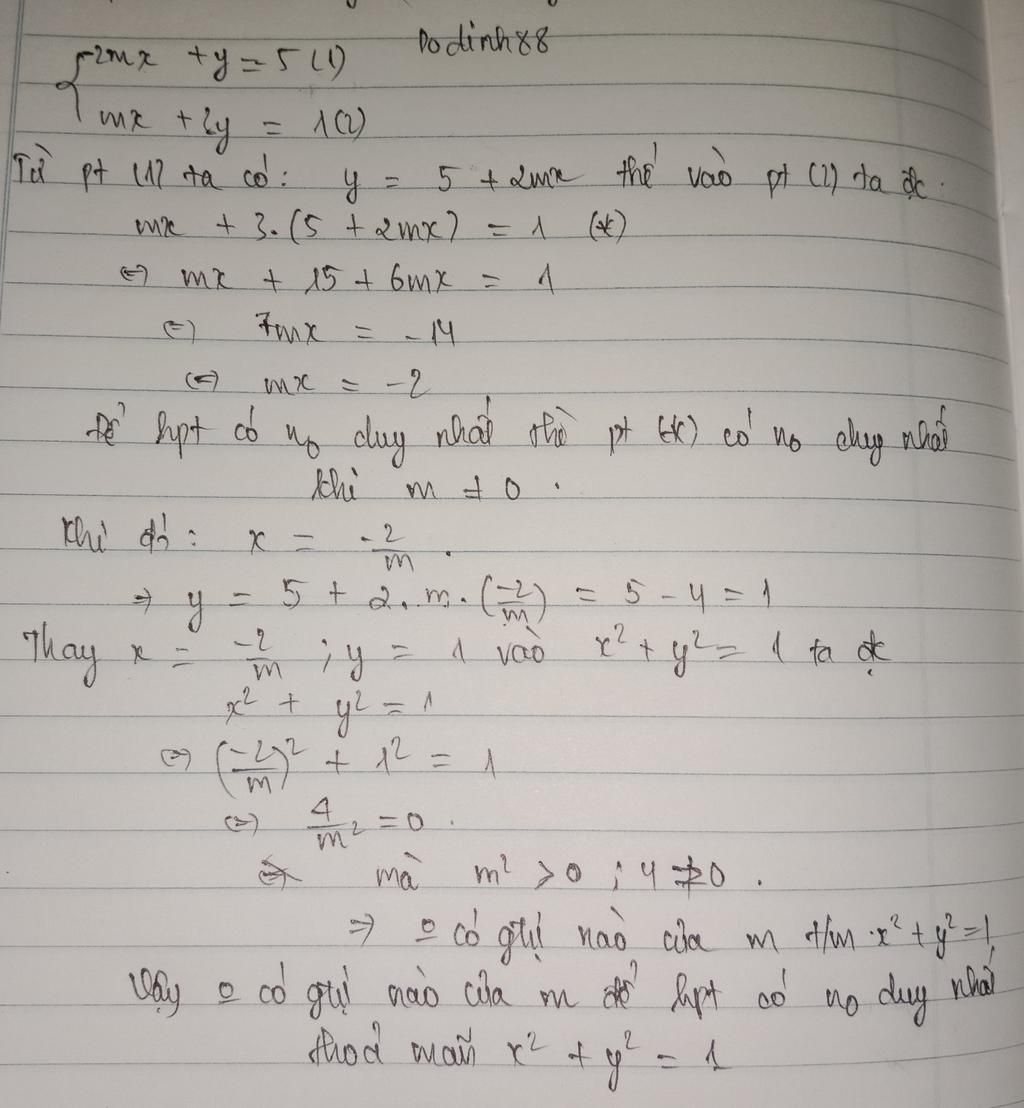 Dodinh88
{-2mx + y = 5 (1)
mx + 3y = 1 (2)
Từ pt (1) ta có: y = 5 + 2mx thế vào pt (2) ta đc.
mx + 3.(5 + 2mx) = 1 (*)
⇔ mx + 15 + 6mx = 1
⇔ 7mx = -14
⇔ mx = -2
Để hpt có no duy nhất thì pt (*) có no duy nhất
khi m ≠ 0.
Khi đó: x = -2/m.
⇒ y = 5 + 2.m.(-2/m) = 5 - 4 = 1
Thay x = -2/m ; y = 1 vào x² + y² = 1 ta đc
x² + y² = 1
⇔ (-2/m)² + 1² = 1
⇔ 4/m² = 0.
mà m² > 0 ; 4 ≠ 0.
⇒ o có gtrị nào của m t/m x² + y² = 1
Vậy o có gtrị nào của m để hpt có no duy nhất
thoả mãn x² + y² = 1